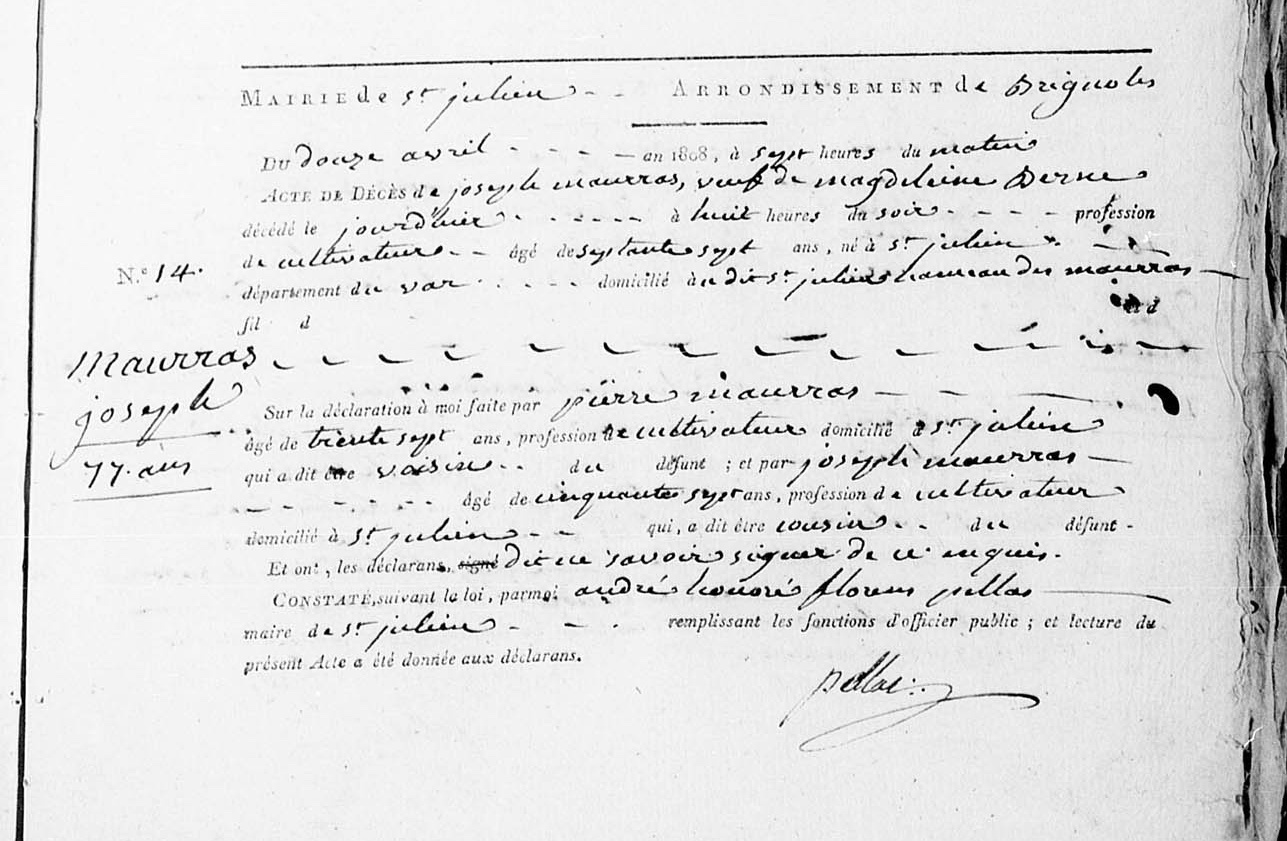 MAIRIE de St julien - ARRONDISSEMENT de Brignoles
DU douze avril - - - - an 1808, à sept heures du matin
ACTE DE DÉCÈS de joseph maurras, veuf de magdeleine Berne
décédé le jourdhier - - - - - à huit heures du soir - - - - profession
de cultivateur - - âgé de septante sept ans, né à St julien
N.° 14.
département du var - - - - domicilié au dit St julien hameau des maurras
fil d et d
Maurras
joseph
77. ans
Sur la déclaration à moi faite par pierre maurras - - -
âgé de trente sept ans, profession de cultivateur domicilié à St julien
qui a dit être voisin - - du défunt ; et par joseph maurras
- - - - - âgé de cinquante sept ans, profession de cultivateur
domicilié à St julien - - qui, a dit être cousin - - du défunt -
Et ont, les déclarans, signé dit ne savoir signer de ce enquis.
CONSTATÉ, suivant la loi, par moi andré honoré florens pellas
maire de St julien - - . remplissant les fonctions d'officier public ; et lecture du
présent Acte a été donnée aux déclarans.
pellas